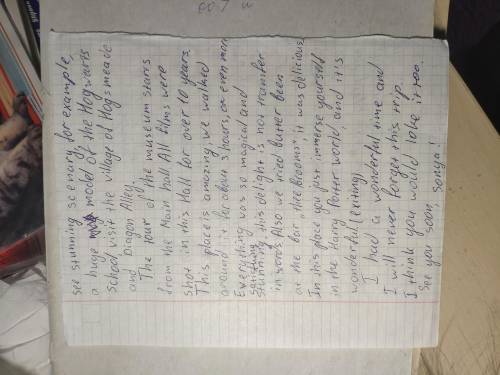 see stunning scenary, for example,
a huge model of the Hogwarts
school visit the village of Hogsmeade
and Diagon Alley
The tour of the museum starts
from the Main hall. All films were
shot in this Hall for over 10 years.
This place is amazing, we walked
around it for about 5 hours, or even more
Everything was so magical and
stunning this delight is not transfer
in words Also we tried Butter been
at the bar "Three Brooms", it was delicious
In this place you just immerse yourself
in the Harry Potter world, and it's
wonderful feeling)
I had a wonderful time and
I will never forget this trip.
I think you would like it too.
See you soon, Songa!